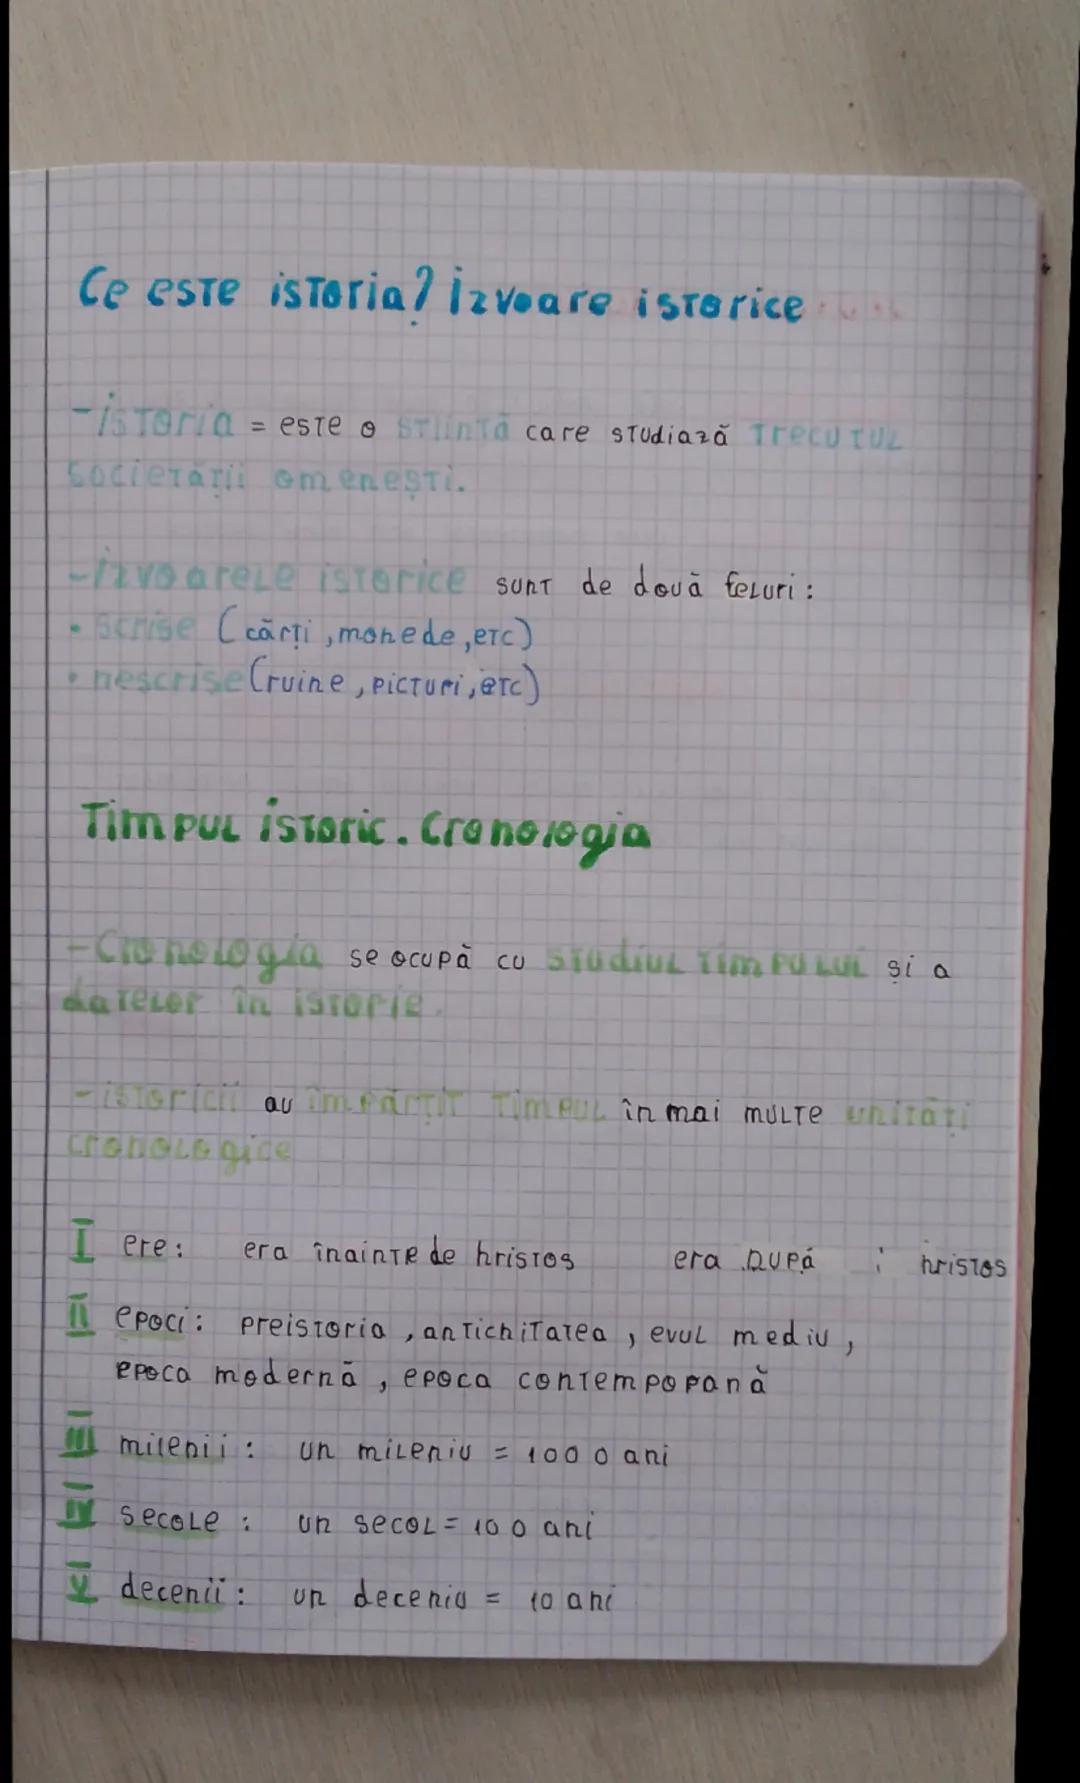 Ce este istoria? Izvoare istorice
-istoria = este o stiintă care studiază trecutul
societății omenești.
-izvoarele istorice sunt de două feluri:
• scrise (cărți, monede, etc)
• nescrise (ruine, picturi, etc)
Timpul istoric. Cronologia
-Cronologia se ocupă cu studiul timpului și a
datelor în istorie.
-istoricii au împărțit timpul în mai multe unități
cronologice
I ere: era înainte de hristos era după hristos
II epoci: preistoria, antichitatea, evul mediu,
epoca modernă, epoca contemporană
III milenii: un mileniu = 1000 ani
IV secole: un secol = 100 ani
V decenii: un deceniu = 10 ani